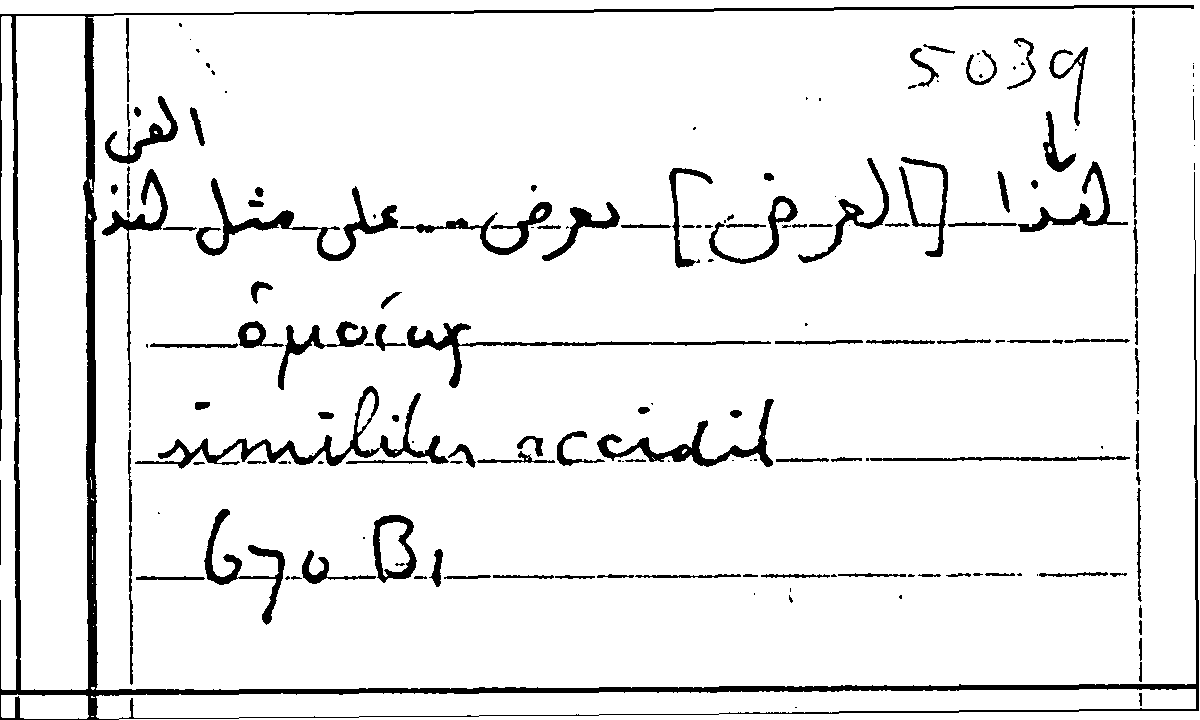 5039
هذا [العرض] يعرض .. على مثل هذا
الفن
ὁμοίως
similiter accidit
670 B1